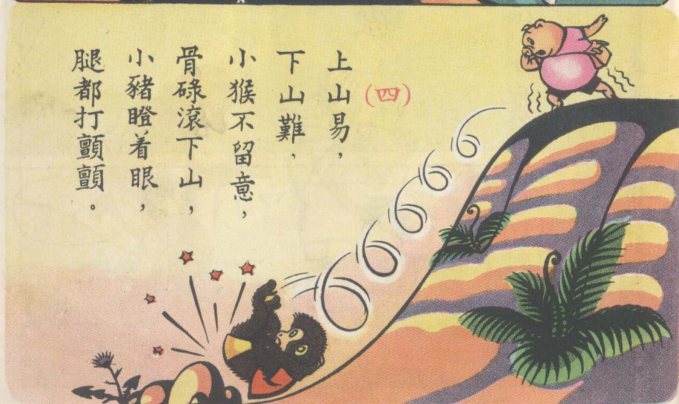 （四）
上山易，
下山難，
小猴不留意，
骨碌滾下山，
小豬瞪着眼，
腿都打顫顫。